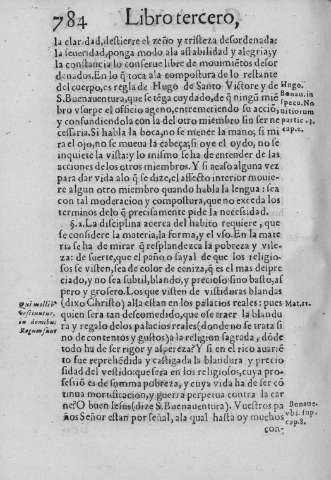 784 Libro tercero,
la claridad, destierre el zeño y tristeza desordenada:
la seueridad, ponga modo ala afabilidad y alegria; y
la constancia lo conserue libre de mouimiẽtos desor
denados. En lo q̃ toca ala compostura de lo restante
del cuerpo, es regla de Hugo de Santo Victore y de
S. Buenauentura, que se tẽga cuydado, de q̃ ningũ miẽ
bro vsurpe el officio ageno, entremetiendo su acciõ,
y confundiendola con la del otro miembro sin ser ne
cessaria. Si habla la boca, no se menee la mano; si mi
ra el ojo, no se mueua la cabeça; si oye el oydo, no se
inquiete la vista: y lo mismo se ha de entender de las
acciones de los otros miembros. Y si acaso alguna vez
para dar vida alo q̃ se dize, el affecto interior mouie-
re algun otro miembro quando habla la lengua: sea
con tal moderacion y compostura, que no exceda los
terminos delo q̃ precisamente pide la necessidad.
§. 2. La disciplina acerca del habito requiere, que
se considere la materia, la forma, y el vso. En la mate
ria se ha de mirar q̃ resplandezca la pobreza y vile-
za: de suerte, que el paño o sayal de que los religio-
sos se visten, sea de color de ceniza, q̃ es el mas depre
ciado, y no sea subtil, blando, y precioso; sino basto, as
pero y grosero. Los que visten de vistiduras blandas
(dixo Christo) alla estan en los palacios reales: pues
quien sera tan desomedido, que ose traer la blandu
ra y regalo delos palacios reales (donde no se trata si
no de contentos y gustos) a la religion sagrada, dõde
todo ha de ser rigor y aspereza? Y si en el rico auariẽ
to fue reprehẽdida y castigada la blandura y precio
sidad del vestido: que sera en los religiosos, cuya pro-
fessiõ es de summa pobreza, y cuya vida ha de ser cõ
tinua mortificacion, y guerra perpetua contra la car
ne? O buen Iesus (dize S. Buenauentura). Vuestros pa
ños Señor estan por señal, ala qual hasta oy muchos
con-
Hugo.
Bonau. in
specu. No
uitiorum
partic. 3.
cap. 1.
Qui mollib⁹
vestiuntur,
in domibus
Regum sunt
Mat. 11.
Bonaue.
vbi sup.
cap. 8.